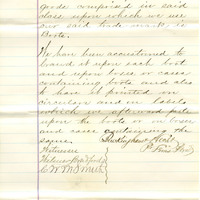 goods comprised in said
class upon which we use
our said trade mark, is
Boots.
We have been accustomed to
brand it upon each boot
and upon boxes or cases
containing boots and also
to have it printed on
circulars and on labels
which we afterward paste
upon the boots or on boxes
and cases containing the
same.
Witnesses